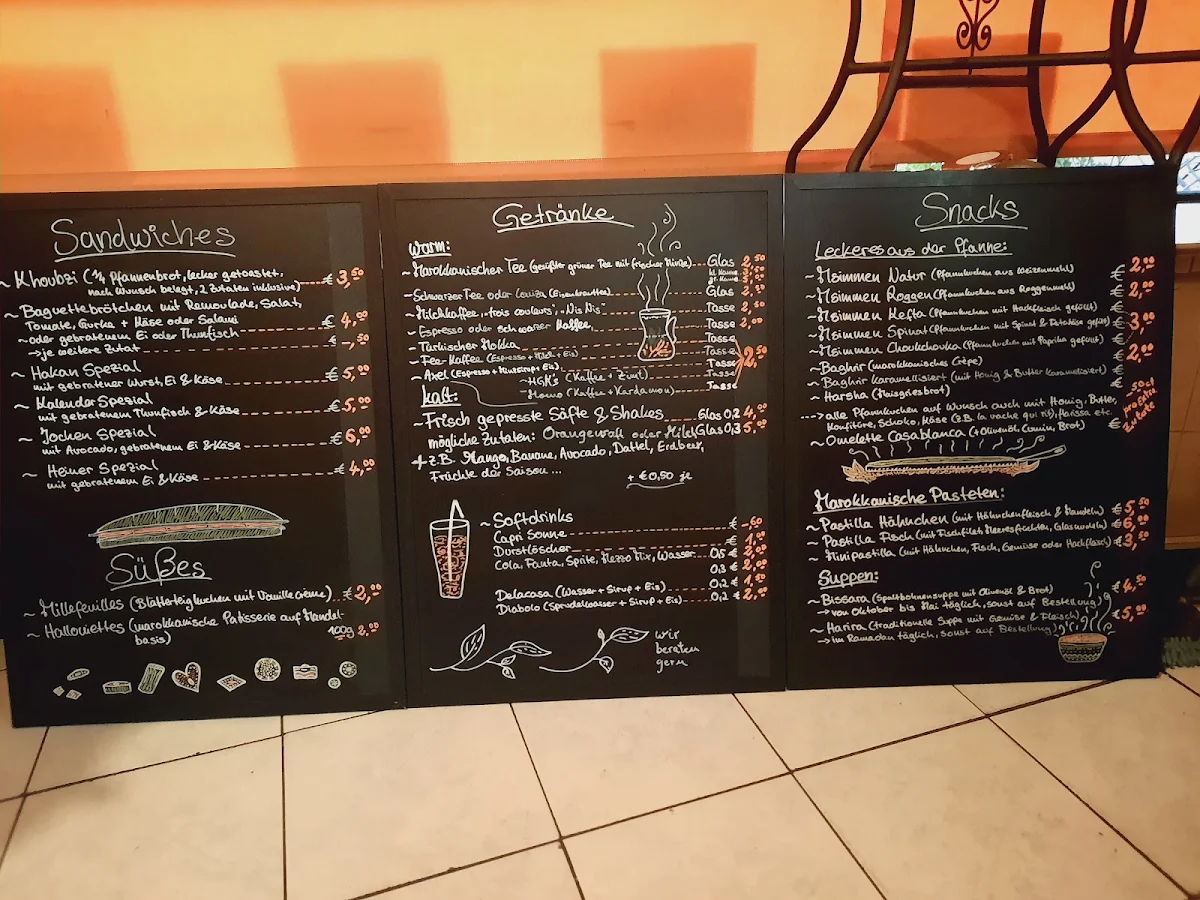 Sandwiches
~ Khoubzi (1/4 Pfannenbrot, lecker getoastet, € 3,50
nach Wunsch belegt, 2 Zutaten inklusive)
~ Baguettebrötchen mit Remoulade, Salat,
Tomate, Gurke + Käse oder Salami € 4,00
~ oder gebratenem Ei oder Thunfisch € -,50
→ je weitere Zutat
~ Hakan Spezial
mit gebratener Wurst, Ei & Käse € 5,00
~ Kalender Spezial
mit gebratenem Thunfisch & Käse € 5,00
~ Jochen Spezial
mit Avocado, gebratenem Ei & Käse € 6,00
~ Heiner Spezial
mit gebratenem Ei & Käse € 4,00
Süßes
~ Millefeuilles (Blätterteigkuchen mit Vanillecrème) € 2,00
~ Halloulettes (marokkanische Patisserie auf Mandel-
basis) 100g 2,00
Getränke
warm:
~ Marokkanischer Tee (gesüßter grüner Tee mit frischer Minze) Glas 2,50
kl. Kanne
gr. Kanne
~ Schwarzer Tee oder Louiza (Eisenkraut­tee) Glas 2,50
~ Milchkaffee "trois couleurs", "Nis Nis" Tasse 2,50
~ Espresso oder schwarzer Kaffee Tasse 2,00
~ Türkischer Mokka Tasse
~ Fee-Kaffee (Espresso + Milch + Eis) Tasse 2,50
~ Axel (Espresso + Minzsirup + Eis) Tasse
~ (Kaffee + Zimt) Tasse
~ (Kaffee + Kardamom) Tasse
kalt:
~ Frisch gepresste Säfte & Shakes Glas 0,2 4,00
mögliche Zutaten: Orangensaft oder Milch Glas 0,3 5,00
+ z.B. Mango, Banane, Avocado, Dattel, Erdbeer,
Früchte der Saison ... + € 0,50 je
~ Softdrinks
Capri Sonne € -,60
Durstlöscher € 1,00
Cola, Fanta, Sprite, Mezzo Mix, Wasser 0,5 € 2,00
0,3 € 2,00
Delacasa (Wasser + Sirup + Eis) 0,2 € 1,50
Diabolo (Sprudelwasser + Sirup + Eis) 0,2 € 2,00
wir
beraten
gern
Snacks
Leckeres aus der Pfanne:
~ Msimmen Natur (Pfannkuchen aus Weizenmehl) € 2,00
~ Msimmen Roggen (Pfannkuchen aus Roggenmehl) € 2,00
~ Msimmen Kefta (Pfannkuchen mit Hackfleisch gefüllt) €
~ Msimmen Spinat (Pfannkuchen mit Spinat & Fetakäse gefüllt) € 3,00
~ Msimmen Choukchouka (Pfannkuchen mit Paprika gefüllt) €
~ Baghrir (marokkanisches Crêpe) € 2,00
~ Baghrir Karamellisiert (mit Honig & Butter karamellisiert) €
~ Harsha (Maisgriesbrot) €
---> alle Pfannkuchen auf Wunsch auch mit Honig, Butter,
Konfitüre, Schoko, Käse (z.B. la vache qui rit), Harissa etc.
50ct pro extra Zutat
~ Omelette Casablanca (+ Olivenöl, Cumin, Brot) €
Marokkanische Pasteten:
~ Pastilla Hähnchen (mit Hähnchenfleisch & Mandeln) € 5,50
~ Pastilla Fisch (mit Fischfilet, Meeresfrüchten, Glasnudeln) € 6,00
~ Minipastilla (mit Hähnchen, Fisch, Gemüse oder Hackfleisch) € 3,50
Suppen:
~ Bissara (Spaltbohnensuppe mit Olivenöl & Brot) € 4,50
→ von Oktober bis Mai täglich, sonst auf Bestellung)
~ Harira (traditionelle Suppe mit Gemüse & Fleisch) € 5,00
→ im Ramadan täglich, sonst auf Bestellung)